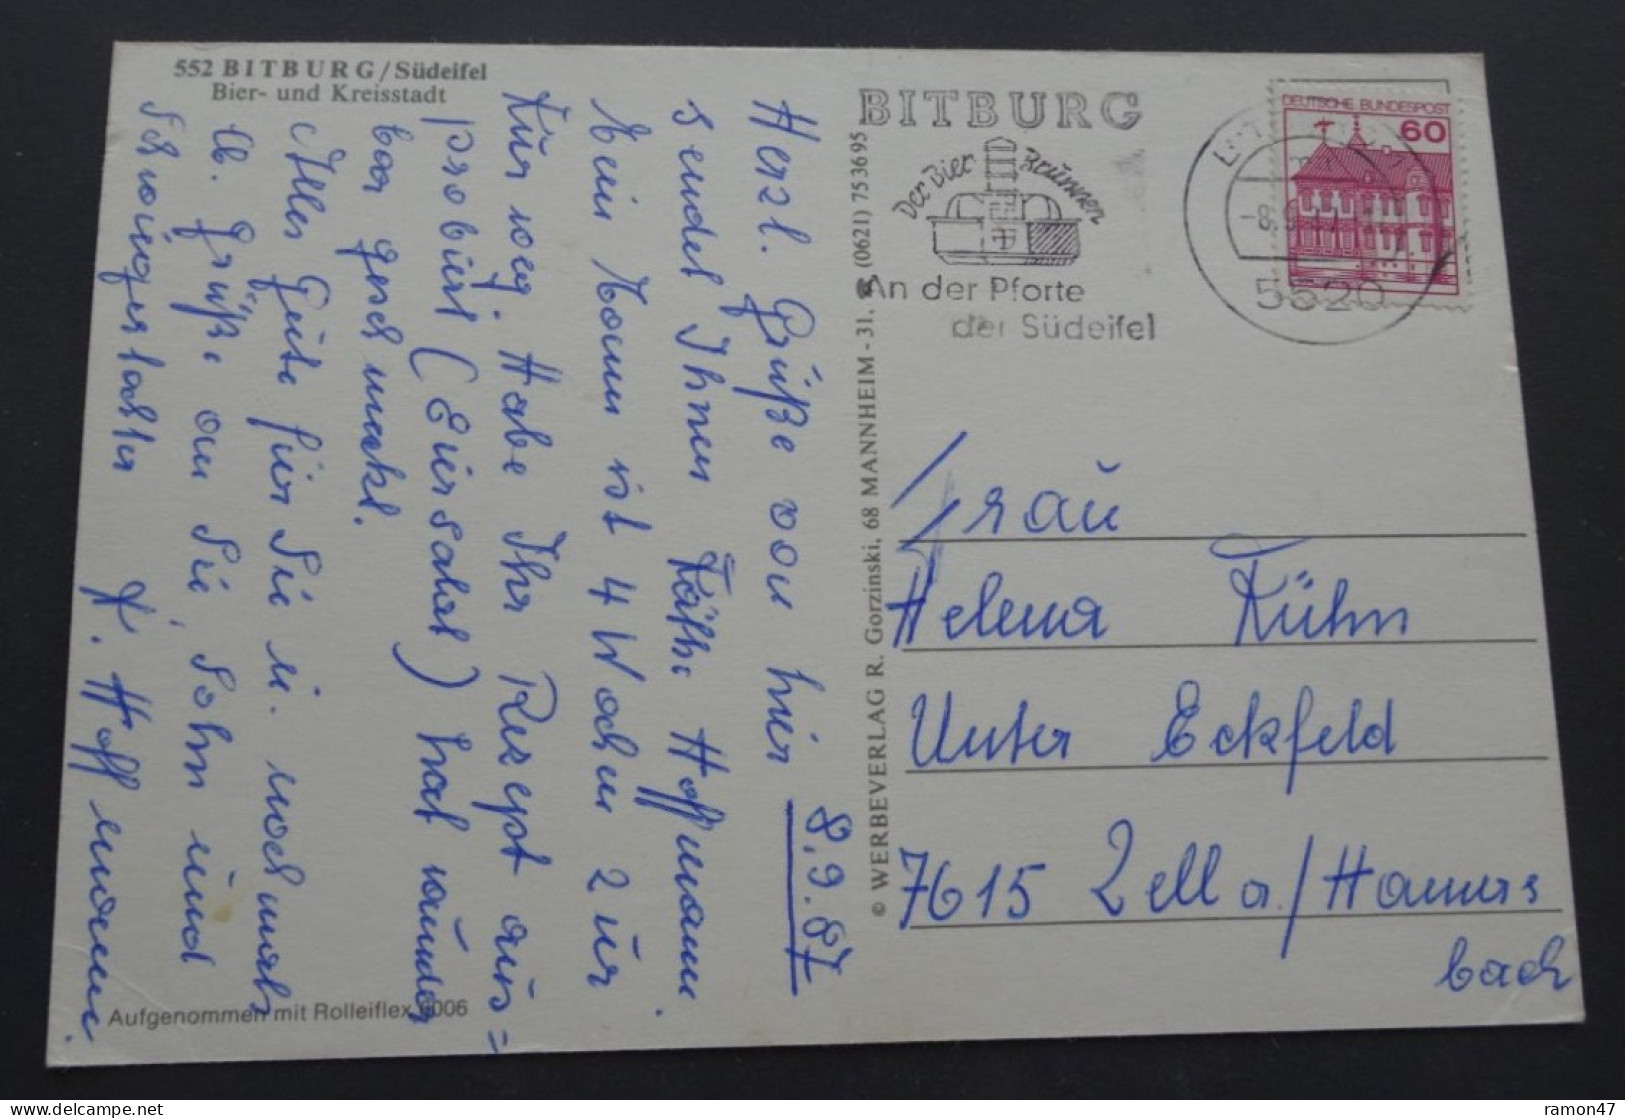 552 BITBURG/Südeifel
Bier- und Kreisstadt
Herzl. Grüße von hier
sendet Ihnen Käthe Hoffmann.
bein Mann ist 4 Wochen zür
Kur weg. Habe Ihr Rezept aus=
probiert (Eiersalat) hat wunder
bar geschmeckt.
Alles Gute für Sie u. nochmals
lb. Grüße an Sie, Sohn und
Schwiegertochter K. Hoffmann.
8.9.87
Aufgenommen mit Rolleiflex 6006
© WERBEVERLAG R. Gorzinski, 68 MANNHEIM - 31. ☎ (0621) 753695
BITBURG
Der Bier Brunnen
An der Pforte
der Südeifel
5520
DEUTSCHE BUNDESPOST
60
Frau
Helena Kühn
Unter Eckfeld
7615 Zell a./Hamers
bach
ramon47